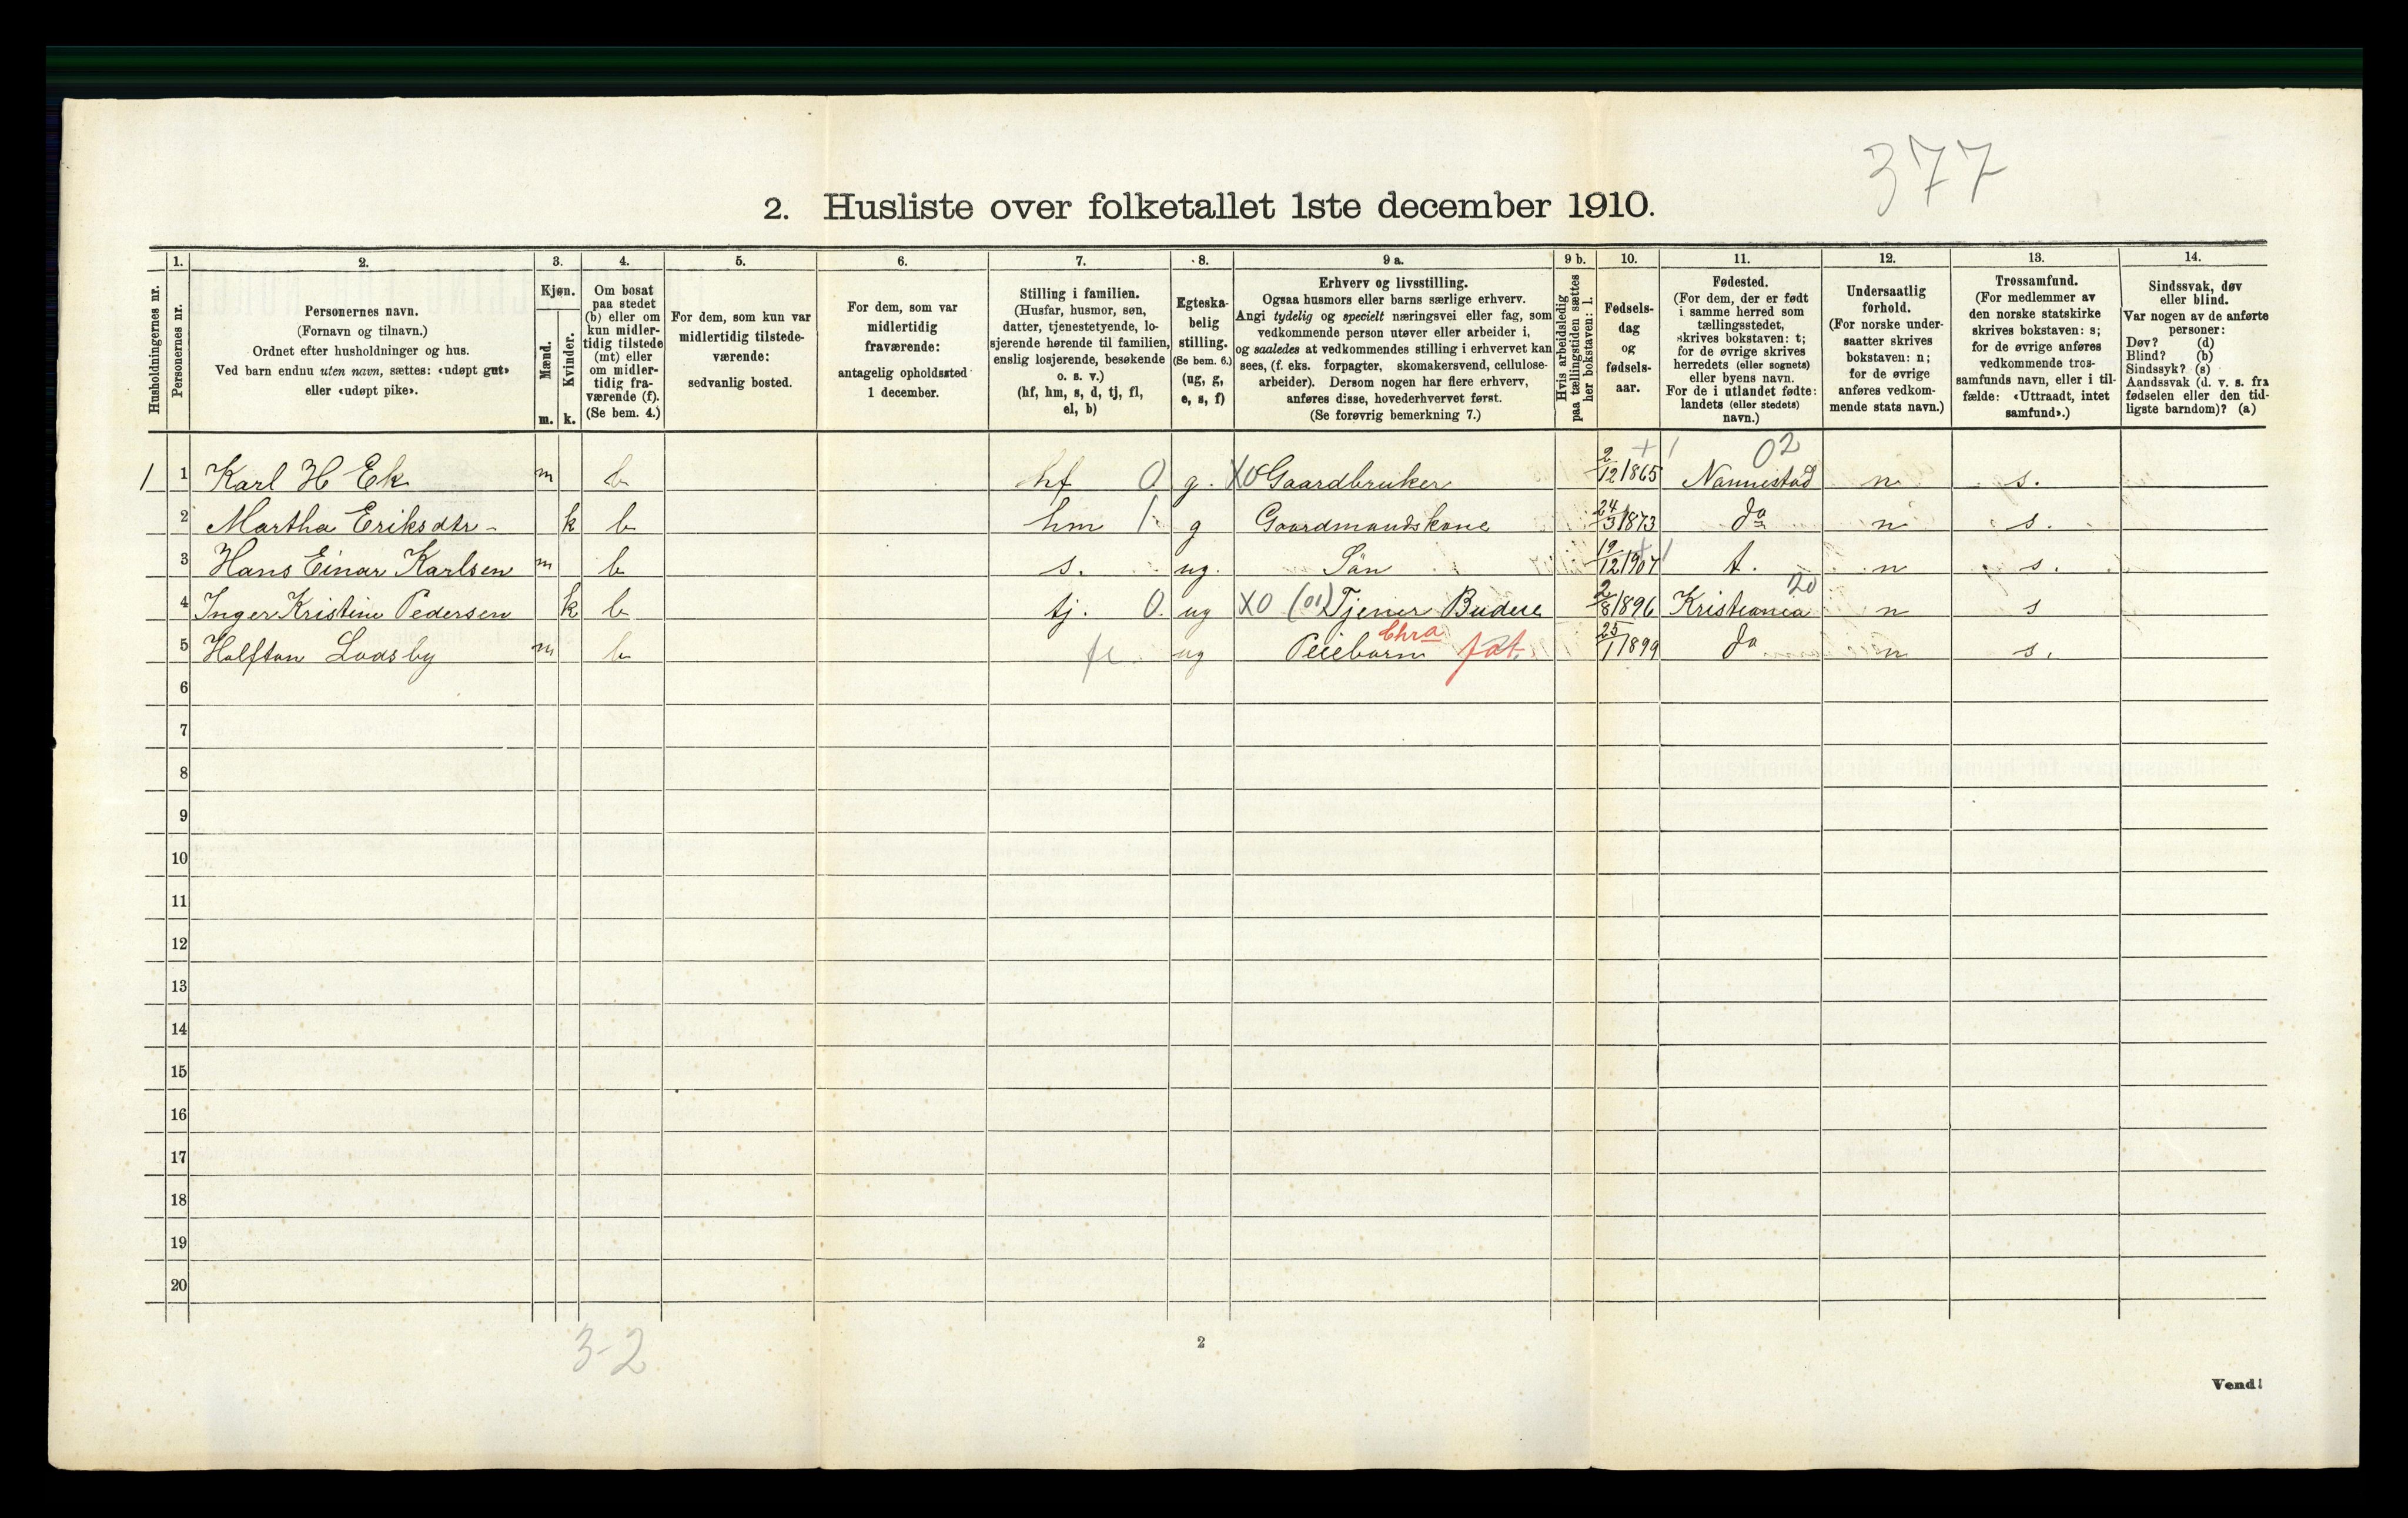 377
2. Husliste over folketallet 1ste december 1910.
1. 2. 3. 4. 5. 6. 7. 8. 9 a. 9 b. 10. 11. 12. 13. 14.
Husholdningernes nr.
Personernes nr.
Personernes navn.
(Fornavn og tilnavn.)
Ordnet efter husholdninger og hus.
Ved barn endnu uten navn, sættes: «udøpt gut»
eller «udøpt pike».
Kjøn.
Mænd.
m.
Kvinder.
k.
Om bosat
paa stedet
(b) eller om
kun midler-
tidig tilstede
(mt) eller
om midler-
tidig fra-
værende (f).
(Se bem. 4.)
For dem, som kun var
midlertidig tilstede-
værende:
sedvanlig bosted.
For dem, som var
midlertidig
fraværende:
antagelig opholdssted
1 december.
Stilling i familien.
(Husfar, husmor, søn,
datter, tjenestetyende, lo-
sjerende hørende til familien,
enslig losjerende, besøkende
o. s. v.)
(hf, hm, s, d, tj, fl,
el, b)
Egteska-
belig
stilling.
(Se bem. 6.)
(ug, g,
e, s, f)
Erhverv og livsstilling.
Ogsaa husmors eller barns særlige erhverv.
Angi tydelig og specielt næringsvei eller fag, som
vedkommende person utøver eller arbeider i,
og saaledes at vedkommendes stilling i erhvervet kan
sees, (f. eks. forpagter, skomakersvend, cellulose-
arbeider). Dersom nogen har flere erhverv,
anføres disse, hovederhvervet først.
(Se forøvrig bemerkning 7.)
Hvis arbeidsledig
paa tællingstiden sættes
her bokstaven: l.
Fødsels-
dag
og
fødsels-
aar.
Fødested.
(For dem, der er født
i samme herred som
tællingsstedet,
skrives bokstaven: t;
for de øvrige skrives
herredets (eller sognets)
eller byens navn.
For de i utlandet fødte:
landets (eller stedets)
navn.)
Undersaatlig
forhold.
(For norske under-
saatter skrives
bokstaven: n;
for de øvrige
anføres vedkom-
mende stats navn.)
Trossamfund.
(For medlemmer av
den norske statskirke
skrives bokstaven: s;
for de øvrige anføres
vedkommende tros-
samfunds navn, eller i til-
fælde: «Uttraadt, intet
samfund».)
Sindssvak, døv
eller blind.
Var nogen av de anførte
personer:
Døv? (d)
Blind? (b)
Sindssyk? (s)
Aandssvak (d. v. s. fra
fødselen eller den tid-
ligste barndom)? (a)
02
1 1 Karl H Ek m b hf 0 g. X0 Gaardbruker 2/12 1865 Nannestad n s.
2 Martha Eriksdtr - k b hm 1 g Gaardmandskone 24/3 1873 do n s.
3 Hans Einar Karlsen m b s. ug. Sön 19/12 1907 t. n s.
20
4 Inger Kristine Pedersen k b tj. 0. ug X0 (01) Tjener Budeie 2/8 1896 Kristiania n s
Chra
5 Halfton Loosby m b fl ug Peiebarn fat. 25/1 1899 do n s.
6
7
8
9
10
11
12
13
14
15
16
17
18
19
20
3-2
2
Vend!